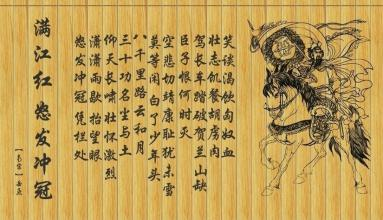 满江红 怒发冲冠
岳飞
怒发冲冠凭栏处
潇潇雨歇抬望眼
仰天长啸壮怀激烈
三十功名尘与土
八千里路云和月
莫等闲白了少年头
空悲切靖康耻犹未雪
臣子恨何时灭
驾长车踏破贺兰山缺
壮志饥餐胡虏肉
笑谈渴饮匈奴血